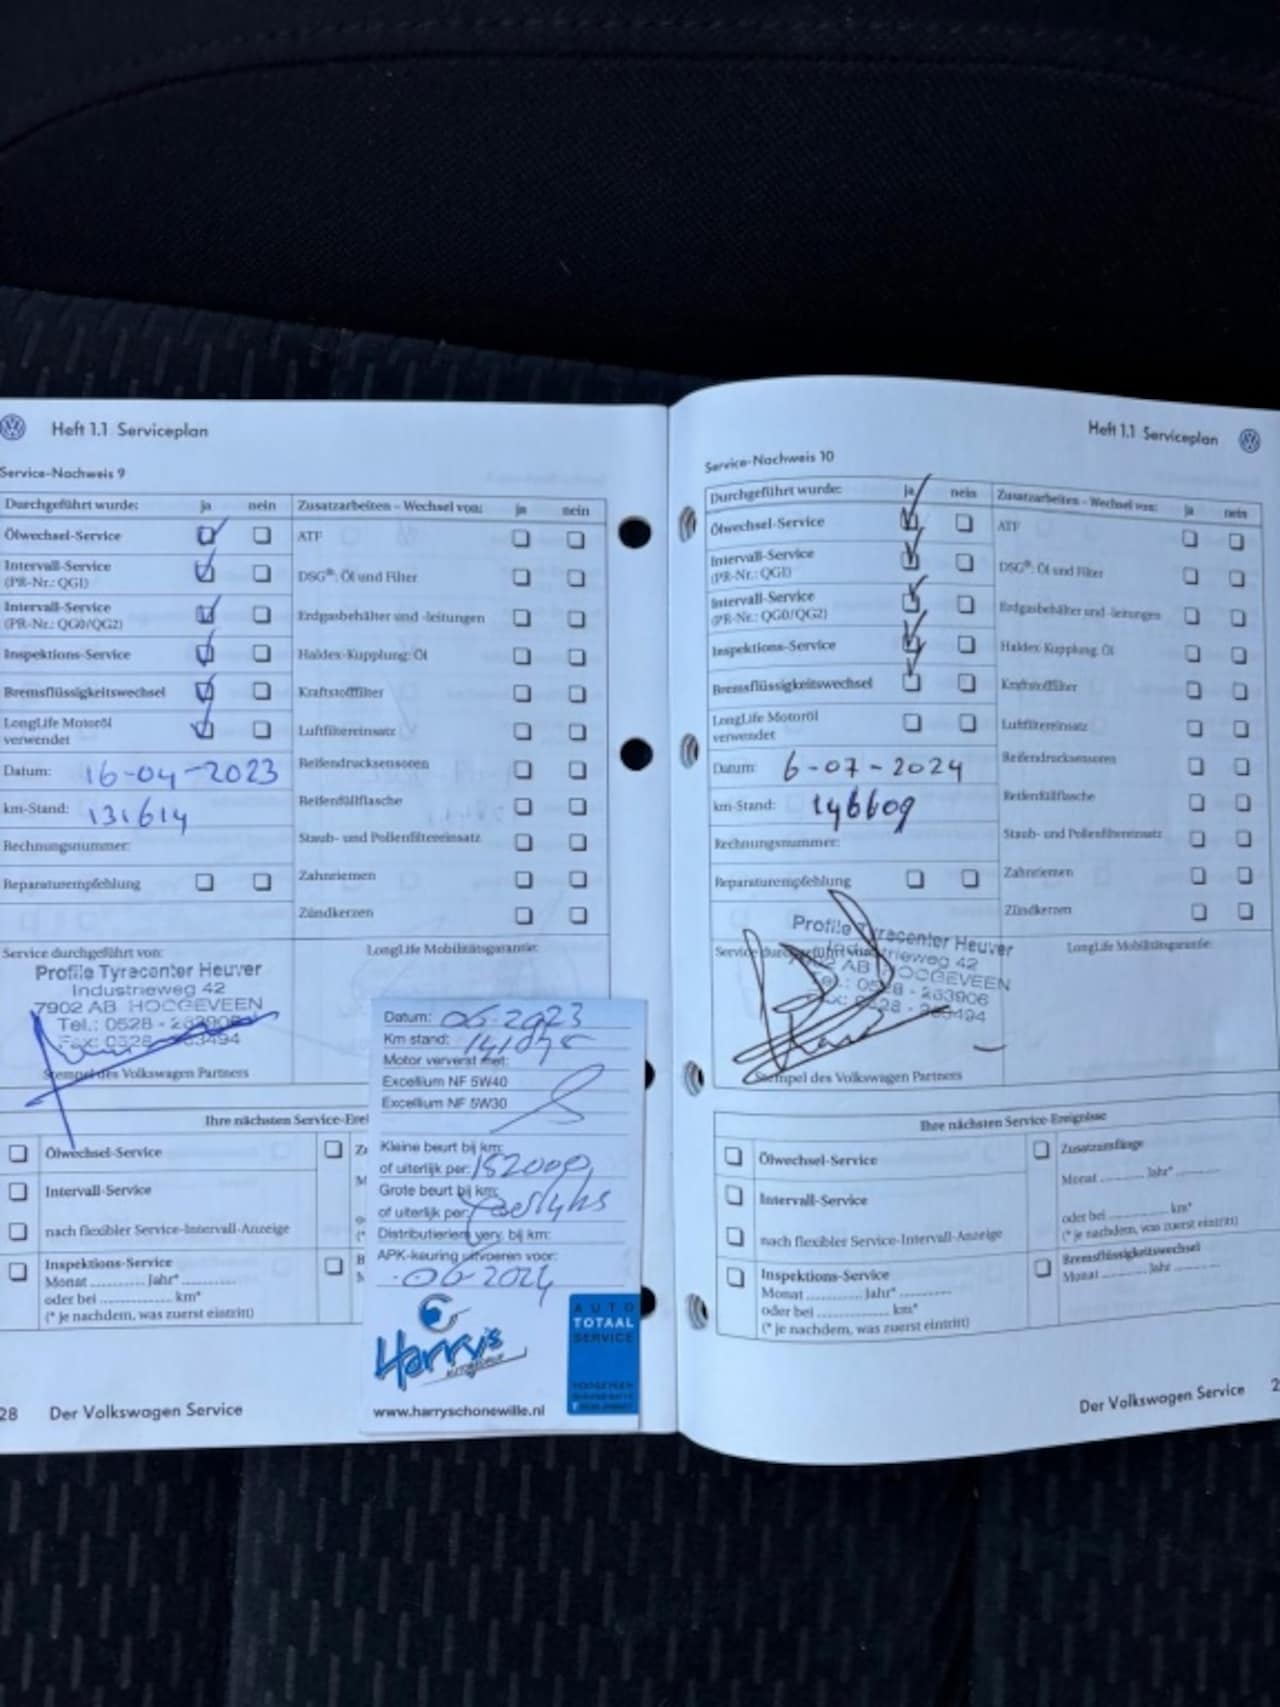 Heft 1.1 Serviceplan
Service-Nachweis 9
Durchgeführt wurde: ja nein
Ölwechsel-Service
Intervall-Service
(PR-Nr.: QGI)
Intervall-Service
(PR-Nr.: QG0/QG2)
Inspektions-Service
Bremsflüssigkeitswechsel
LongLife Motoröl
verwendet
Datum: 16-04-2023
km-Stand: 131614
Rechnungsnummer:
Reparaturempfehlung
Zusatzarbeiten - Wechsel von: ja nein
ATF
DSG®: Öl und Filter
Erdgasbehälter und -leitungen
Haldex-Kupplung: Öl
Kraftstoffilter
Luftfiltereinsatz
Reifendrucksensoren
Reifenfüllflasche
Staub- und Pollenfiltereinsatz
Zahnriemen
Zündkerzen
Service durchgeführt von:
Profile Tyrecenter Heuver
Industrieweg 42
7902 AB HOOGEVEEN
Tel.: 0528 - 263906
Fax: 0528 - 263494
Stempel des Volkswagen Partners
LongLife Mobilitätsgarantie:
Ihre nächsten Service-Erei
Ölwechsel-Service
Intervall-Service
nach flexibler Service-Intervall-Anzeige
Inspektions-Service
Monat Jahr*
oder bei km*
(* je nachdem, was zuerst eintritt)
28 Der Volkswagen Service
Datum: 06-2023
Km stand:
Motor ververst met:
Excellium NF 5W40
Excellium NF 5W30
Kleine beurt bij km:
of uiterlijk per: 152000
Grote beurt bij km:
of uiterlijk per:
Distributieriem verv. bij km:
APK-keuring uitvoeren voor:
06-2024
Harry's
AUTO
TOTAAL
SERVICE
www.harryschonewille.nl
Heft 1.1 Serviceplan
Service-Nachweis 10
Durchgeführt wurde: ja nein
Ölwechsel-Service
Intervall-Service
(PR-Nr.: QGI)
Intervall-Service
(PR-Nr.: QG0/QG2)
Inspektions-Service
Bremsflüssigkeitswechsel
LongLife Motoröl
verwendet
Datum: 6-07-2024
km-Stand: 146609
Rechnungsnummer:
Reparaturempfehlung
Zusatzarbeiten - Wechsel von: ja nein
ATF
DSG®: Öl und Filter
Erdgasbehälter und -leitungen
Haldex-Kupplung: Öl
Kraftstoffilter
Luftfiltereinsatz
Reifendrucksensoren
Reifenfüllflasche
Staub- und Pollenfiltereinsatz
Zahnriemen
Zündkerzen
Service durchgeführt von:
Profile Tyrecenter Heuver
Industrieweg 42
7902 AB HOOGEVEEN
Tel.: 0528 - 263906
Fax: 0528 - 263494
Stempel des Volkswagen Partners
LongLife Mobilitätsgarantie:
Ihre nächsten Service-Ereignisse
Ölwechsel-Service
Intervall-Service
nach flexibler Service-Intervall-Anzeige
Inspektions-Service
Monat Jahr*
oder bei km*
(* je nachdem, was zuerst eintritt)
Zusatzumfänge
Monat Jahr*
oder bei km*
(* je nachdem, was zuerst eintritt)
Bremsflüssigkeitswechsel
Monat Jahr
Der Volkswagen Service